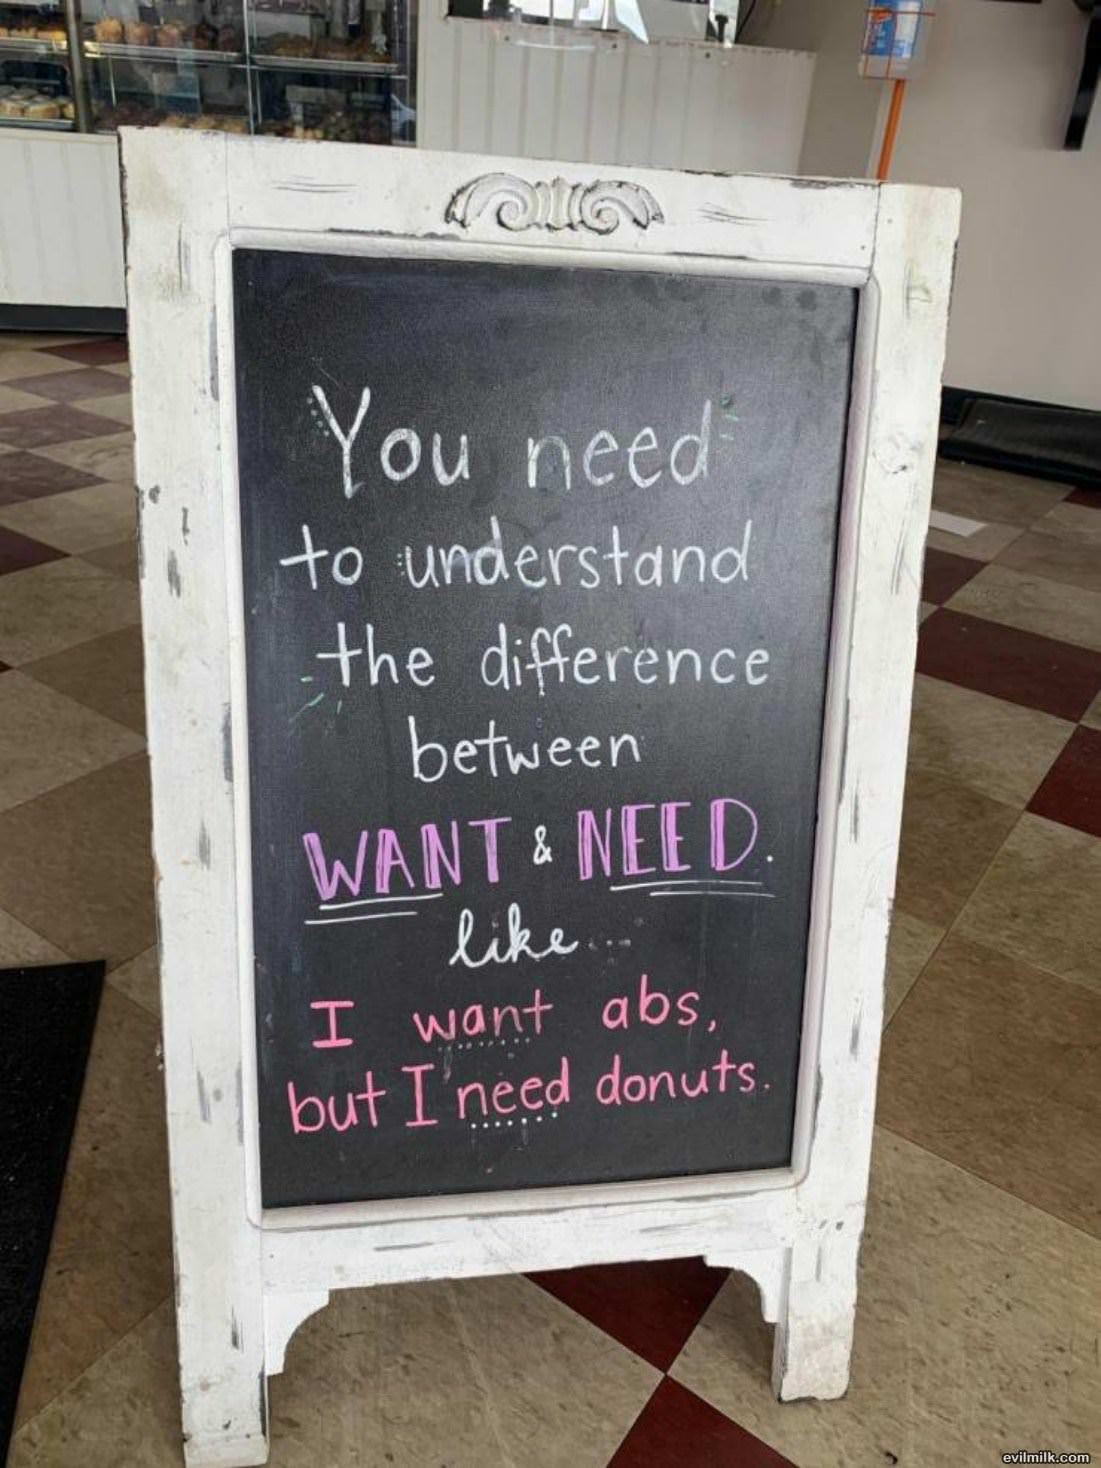 You need
to understand
the difference
between
WANT & NEED.
like...
I want abs,
but I need donuts.
evilmilk.com